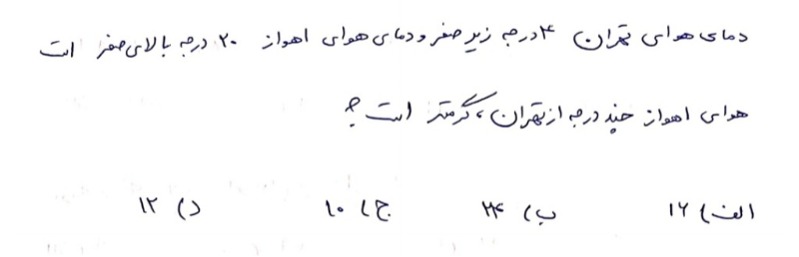 دمای هوای تهران ۴ درجه زیر صفر و دمای هوای اهواز ۲۰ درجه بالای صفر است
هوای اهواز چند درجه از تهران، گرمتر است ؟
الف) ۱۶ ب) ۲۴ ج) ۱۰ د) ۱۲